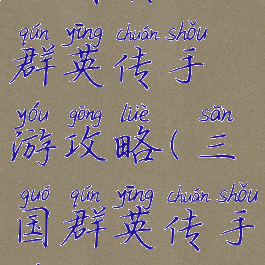 qún yīng chuán shǒu
群英传手
yóu gōng lüè sān
游攻略(三
guó qún yīng chuán shǒu
国群英传手